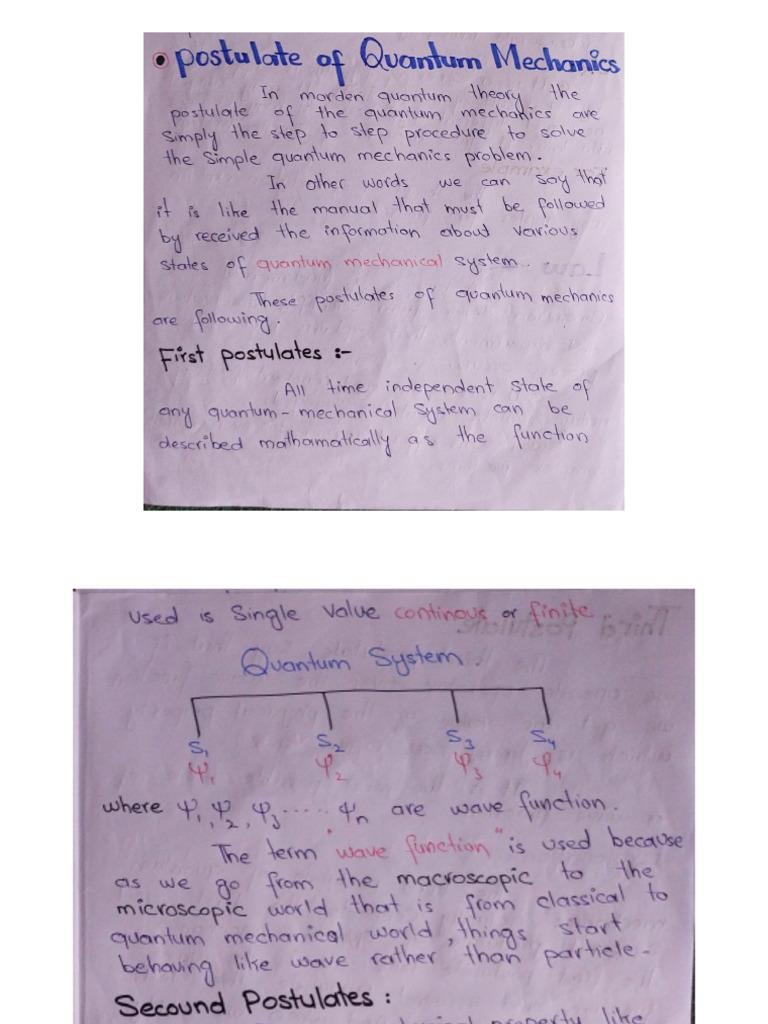 • postulate of Quantum Mechanics
In morden quantum theory the
postulate of the quantum mechanics are
simply the step to step procedure to solve
the simple quantum mechanics problem.
In other words we can say that
it is like the manual that must be followed
by received the information about various
states of quantum mechanical system.
These postulates of quantum mechanics
are following.
First postulates :-
All time independent state of
any quantum-mechanical system can be
described mathamatically as the function
used is single value continous or finite.
Quantum System.
S₁ S₂ S₃ S₄
Ψ₁ Ψ₂ Ψ₃ Ψ₄
where Ψ₁, Ψ₂, Ψ₃ ...... Ψn are wave function.
The term "wave function" is used because
as we go from the macroscopic to the
microscopic world that is from classical to
quantum mechanical world, things start
behaving like wave rather than particle-
Secound Postulates :
property like